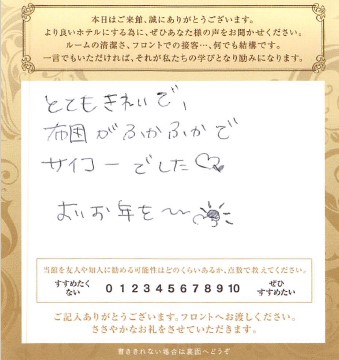 本日はご来館、誠にありがとうございます。
より良いホテルにする為に、ぜひあなた様の声をお聞かせください。
ルームの清潔さ、フロントでの接客…、何でも結構です。
一言でもいただければ、それが私たちの学びとなり励みになります。
とてもきれいで、
布団がふかふかで
サイコーでした♡
よいお年を〜〜
当館を友人や知人に勧める可能性はどのくらいあるか、点数で教えてください。
すすめたくない 0 1 2 3 4 5 6 7 8 9 10 ぜひすすめたい
ご記入ありがとうございます。フロントへお渡しください。
ささやかなお礼をさせていただきます。
書ききれない場合は裏面へどうぞ